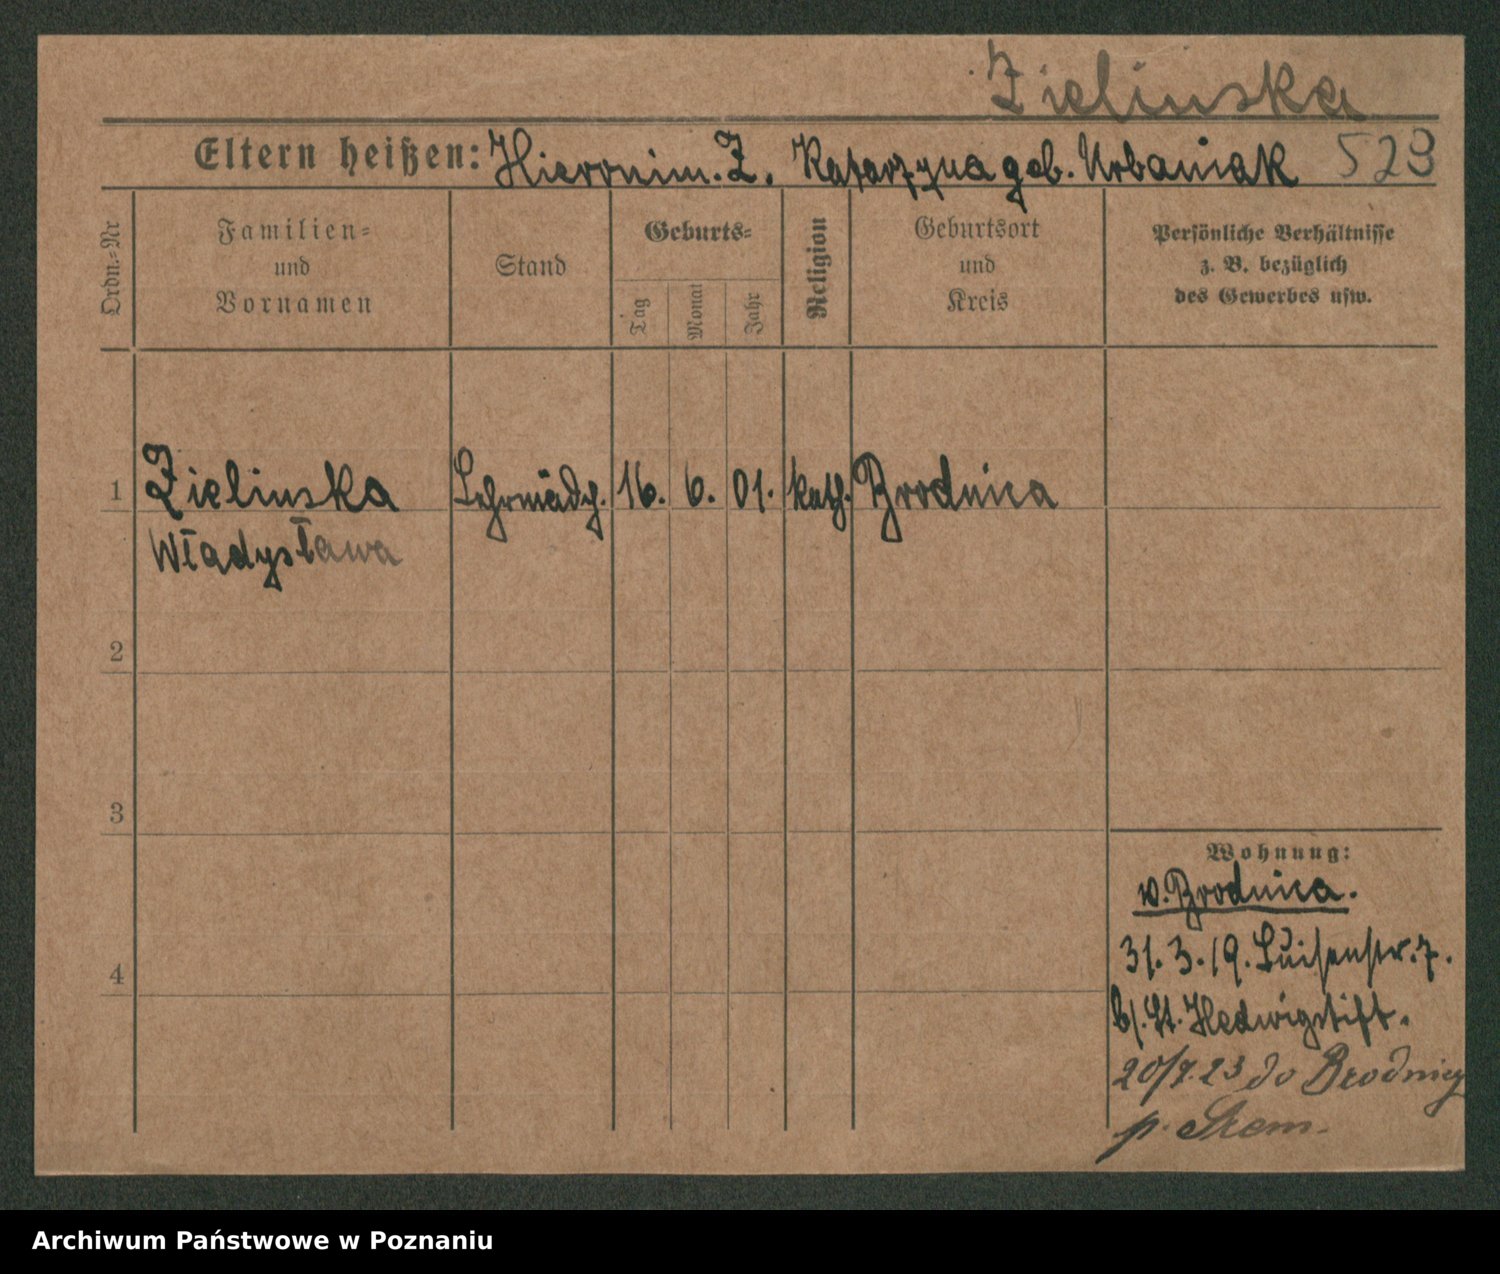 Zielinska
Eltern heißen: Hieronim. Z. Katarzyna geb. Urbaniak 523
Ordn.-Nr
Familien-
und
Vornamen
Stand
Geburts-
Tag
Monat
Jahr
Religion
Geburtsort
und
Kreis
Persönliche Verhältnisse
z. B. bezüglich
des Gewerbes usw.
1 Zielinska Lehrmädch. 16. 6. 01. kath. Brodnica
Władysława
2
3
4
Wohnung:
v. Brodnica.
31. 3. 19. Luisenstr. 7.
b/. St. Hedwigstift.
20/7.23 do Brodnicy
p. Śrem.
Archiwum Państwowe w Poznaniu